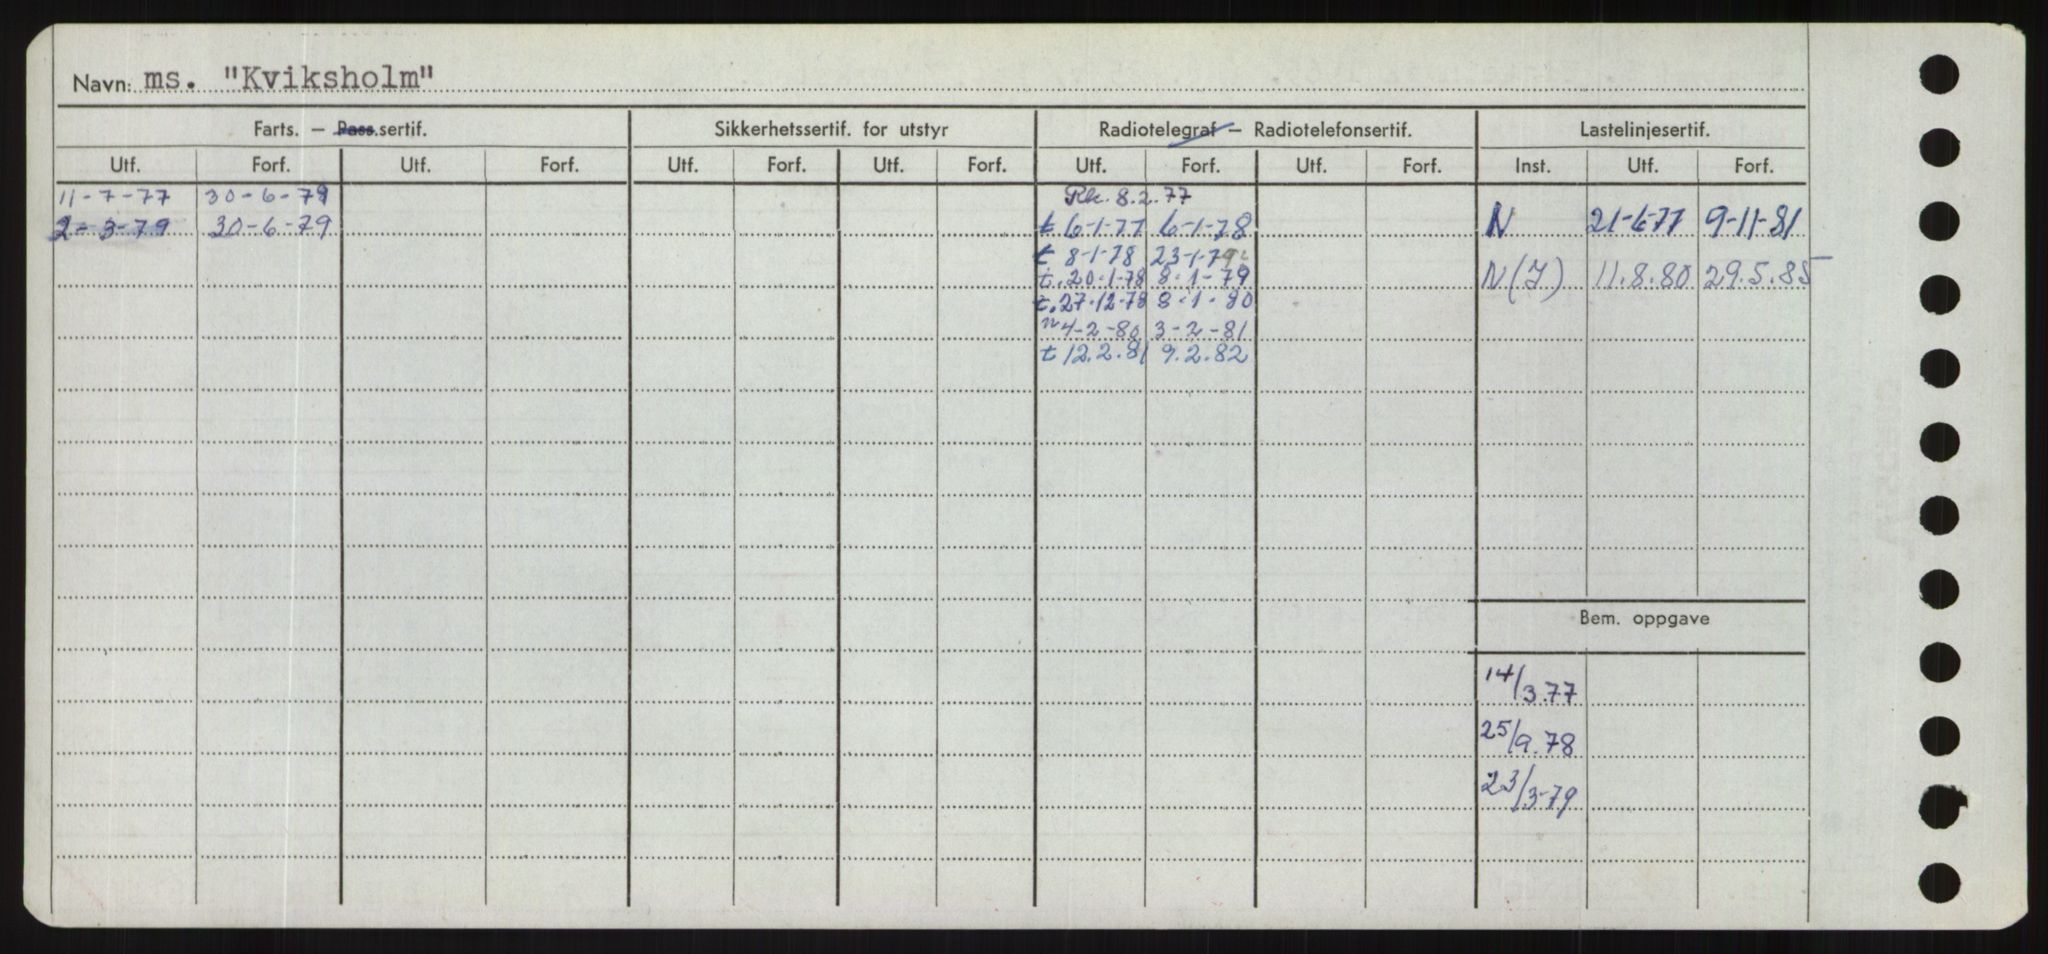 Navn: ms. "Kviksholm"
Farts. – Pass.sertif. Sikkerhetssertif. for utstyr Radiotelegraf – Radiotelefonsertif. Lastelinjesertif.
Utf. Forf. Utf. Forf. Utf. Forf. Utf. Forf. Utf. Forf. Utf. Forf. Inst. Utf. Forf.
11-7-77 30-6-79 8.2.77
2-3-79 30-6-79 t 6-1-77 6-1-78 N 21-6-77 9-11-81
t 8-1-78 23-1-79
t. 20-1-78 8-1-79 N(I) 11.8.80 29.5.85
t. 27-12-78 8-1-80
n 4-2-80 3-2-81
t 12.2.81 9.2.82
Bem. oppgave
14/3.77
25/9.78
23/3-79